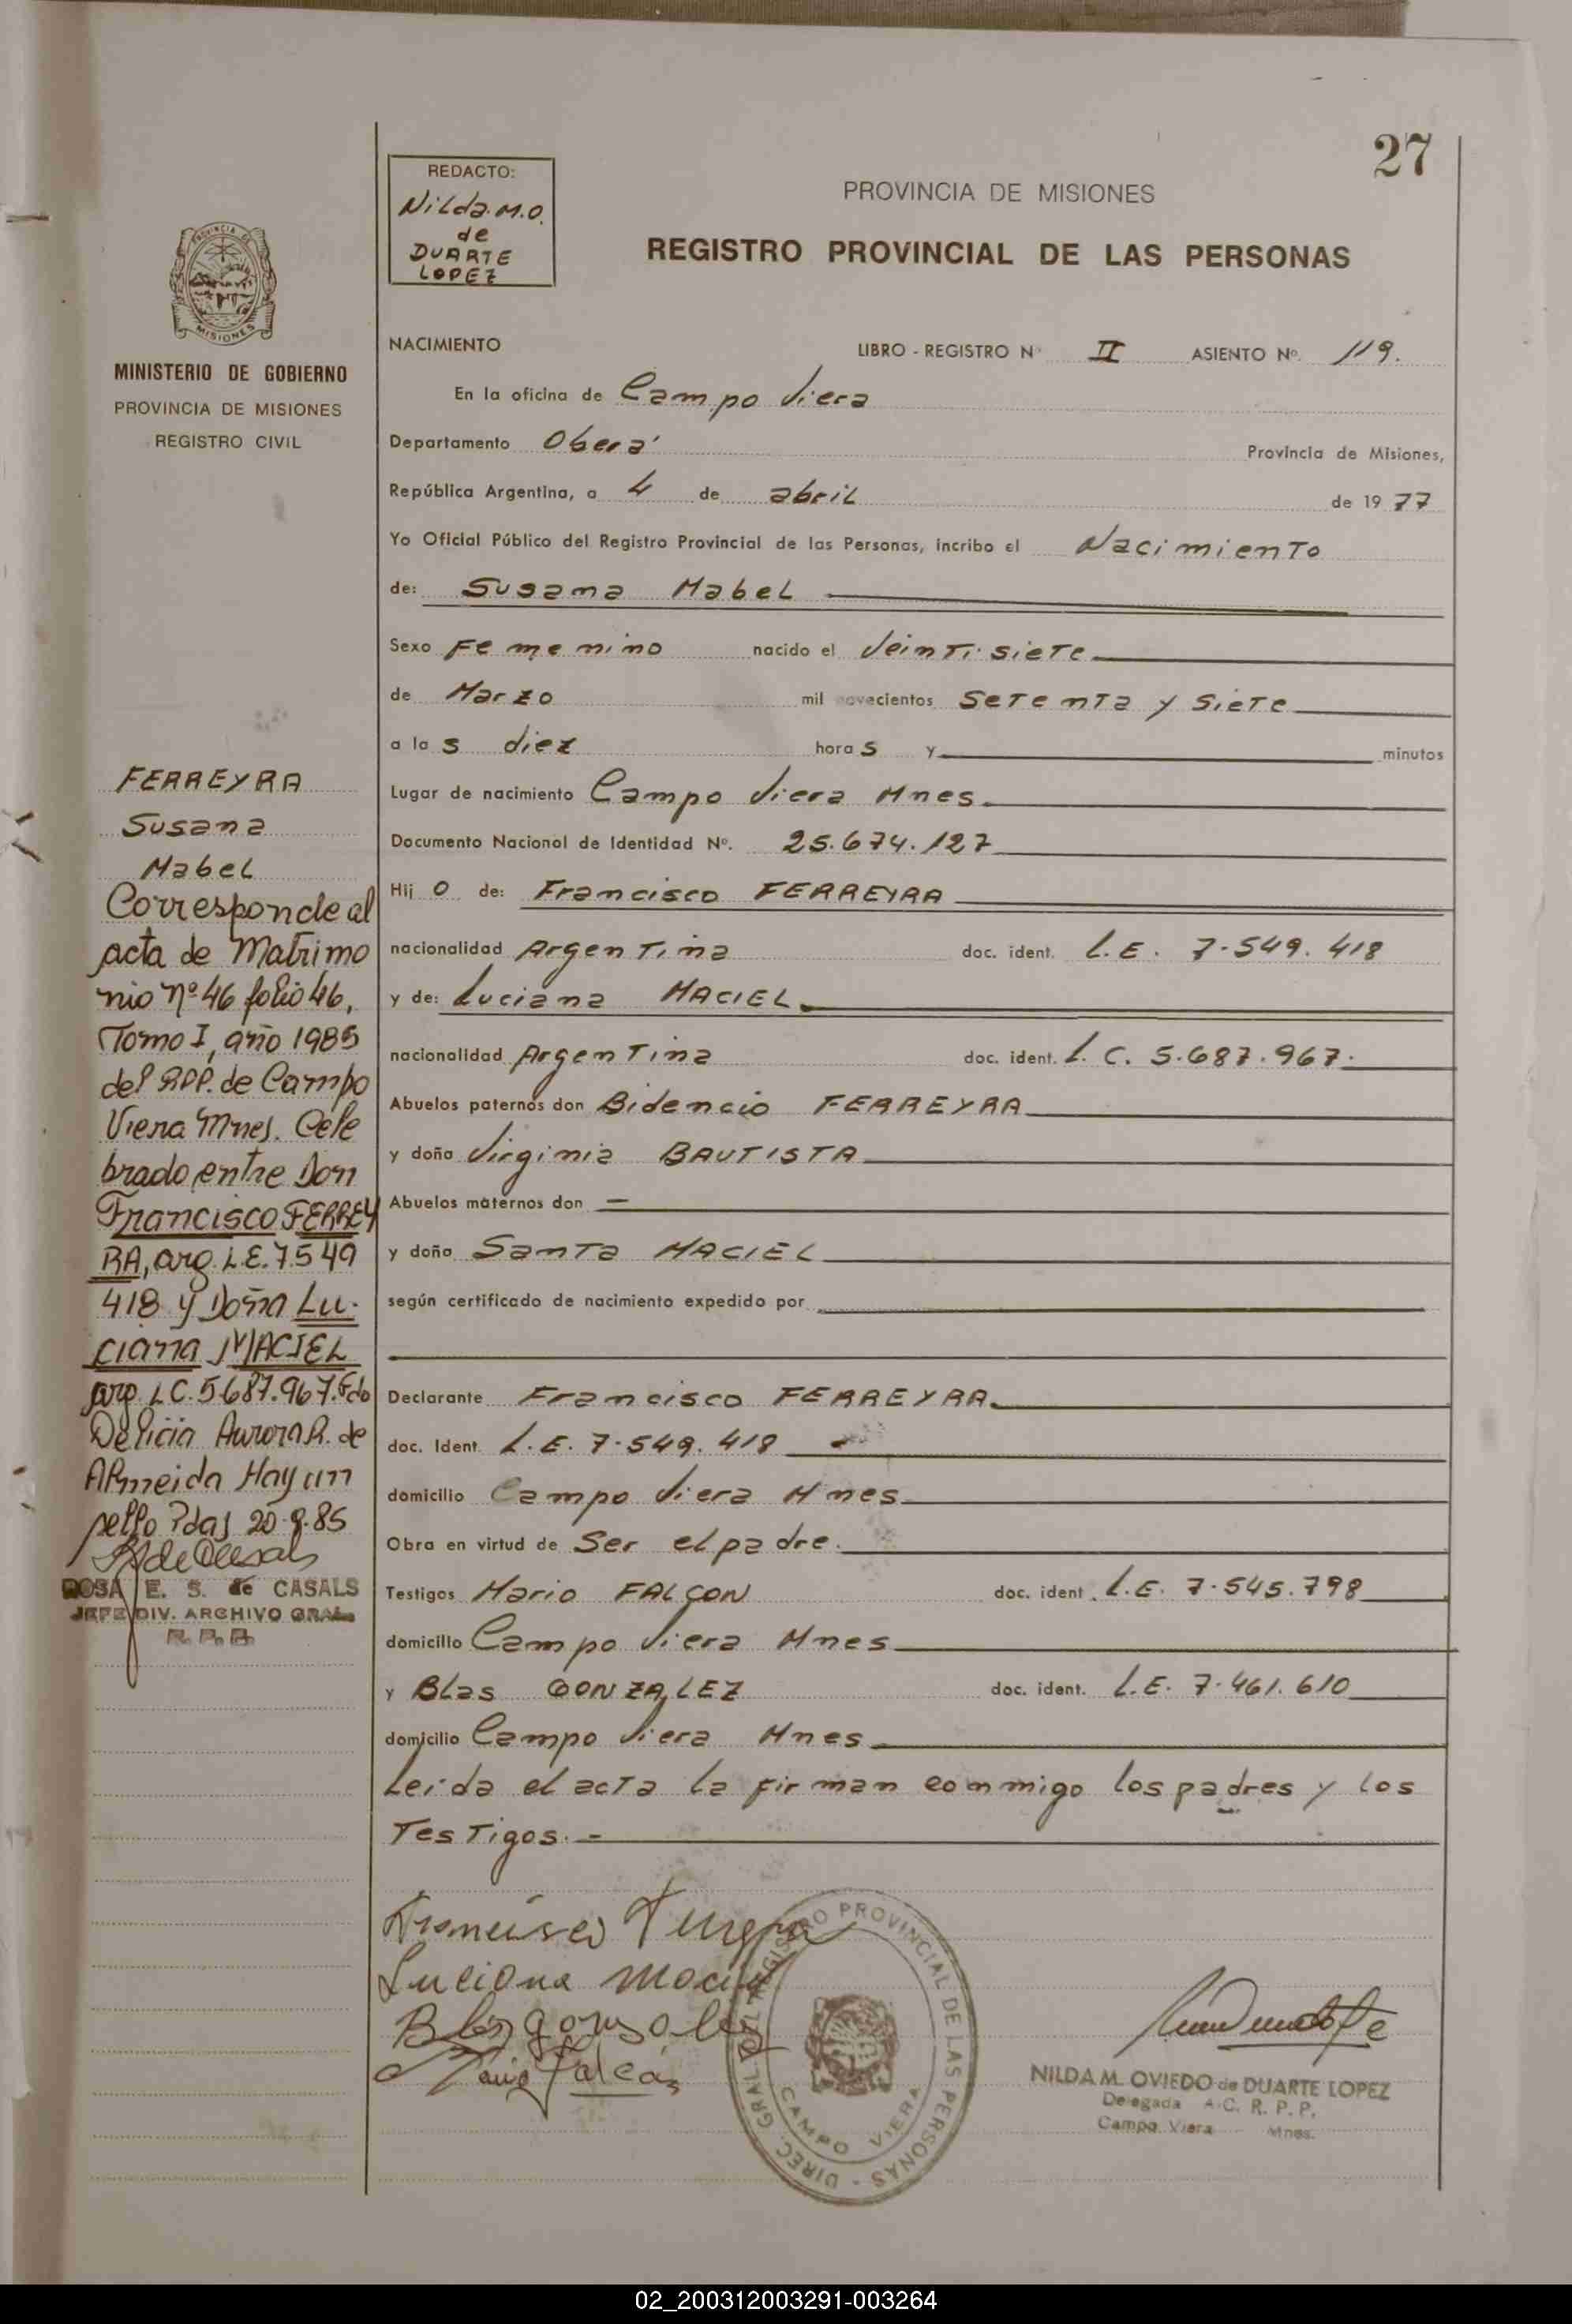 27
REDACTO:
Nilda. M.O.
de
DUARTE
LOPEZ
PROVINCIA DE MISIONES
REGISTRO PROVINCIAL DE LAS PERSONAS
PROVINCIA DE
MISIONES
MINISTERIO DE GOBIERNO
PROVINCIA DE MISIONES
REGISTRO CIVIL
NACIMIENTO LIBRO - REGISTRO Nº II ASIENTO Nº. 119.
En la oficina de Campo Viera
Departamento Oberá Provincia de Misiones,
República Argentina, a 4 de abril de 19 77
Yo Oficial Público del Registro Provincial de las Personas, incribo el Nacimiento
de: Susana Mabel
Sexo Femenino nacido el Veintisiete
de Marzo mil novecientos Setenta y Siete
a la s diez hora s y minutos
Lugar de nacimiento Campo Viera Mnes.
Documento Nacional de Identidad Nº. 25.674.127
Hij o de: Francisco FERREYRA
nacionalidad Argentina doc. ident. L.E. 7.549.418
y de: Luciana MACIEL
nacionalidad Argentina doc. ident. L.C. 5.687.967.
Abuelos paternos don Bidencio FERREYRA
y doña Virginia BAUTISTA
Abuelos maternos don —
y doña Santa MACIEL
según certificado de nacimiento expedido por
Declarante Francisco FERREYRA
doc. Ident. L.E. 7.549.418
domicilio Campo Viera Mnes
Obra en virtud de Ser el padre.
Testigos Mario FALCON doc. ident. L.E. 7.545.798
domicilio Campo Viera Mnes
y Blas GONZALEZ doc. ident. L.E. 7.461.610
domicilio Campo Viera Mnes
Leida el acta la firman conmigo los padres y los
Testigos. -
FERREYRA
Susana
Mabel
Corresponde al
acta de Matrimo
nio nº 46 folio 46,
Tomo I, año 1985
del RPP. de Campo
Viera Mnes. Cele
brado entre Don
Francisco FERREY
RA, arg. L.E. 7.549
418 y Doña Lu-
ciana MACIEL
arg. L.C. 5.687.967. Fdo
Delicia Aurora R. de
Almeida Hay un
sello Pdas 20.9.85
ROSA E. S. de CASALS
JEFE DIV. ARCHIVO GRAL.
R. P. P.
Francisco
Luciana Maciel
Blas gonsalez
Mario Falcón
DIREC. GRAL. DEL REGISTRO PROVINCIAL DE LAS PERSONAS -
CAMPO VIERA
NILDA M. OVIEDO de DUARTE LOPEZ
Delegada A.C. R. P. P.
Campo Viera Mnes.
02_200312003291-003264